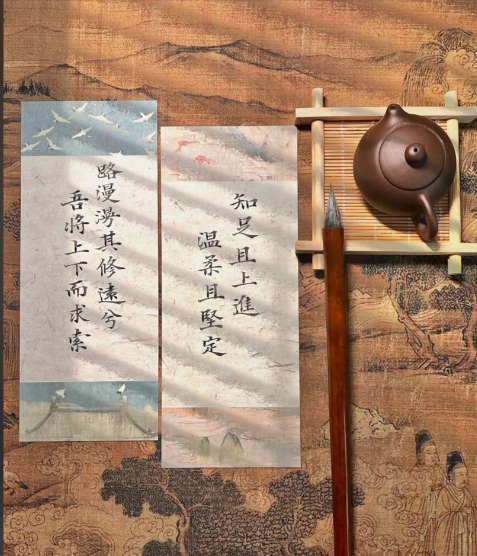 路漫漫其修遠兮
吾將上下而求索
知足且上進
温柔且堅定